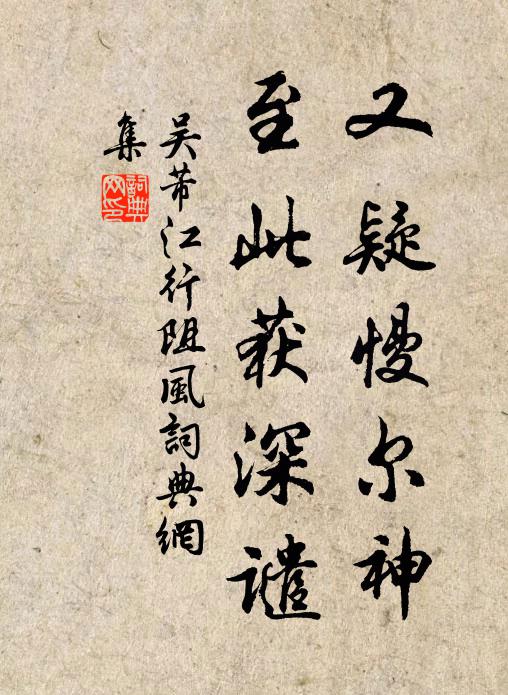 又疑慢尔神
至此获深谴
吴芾江行阻風詞典網
集
詞典
网印